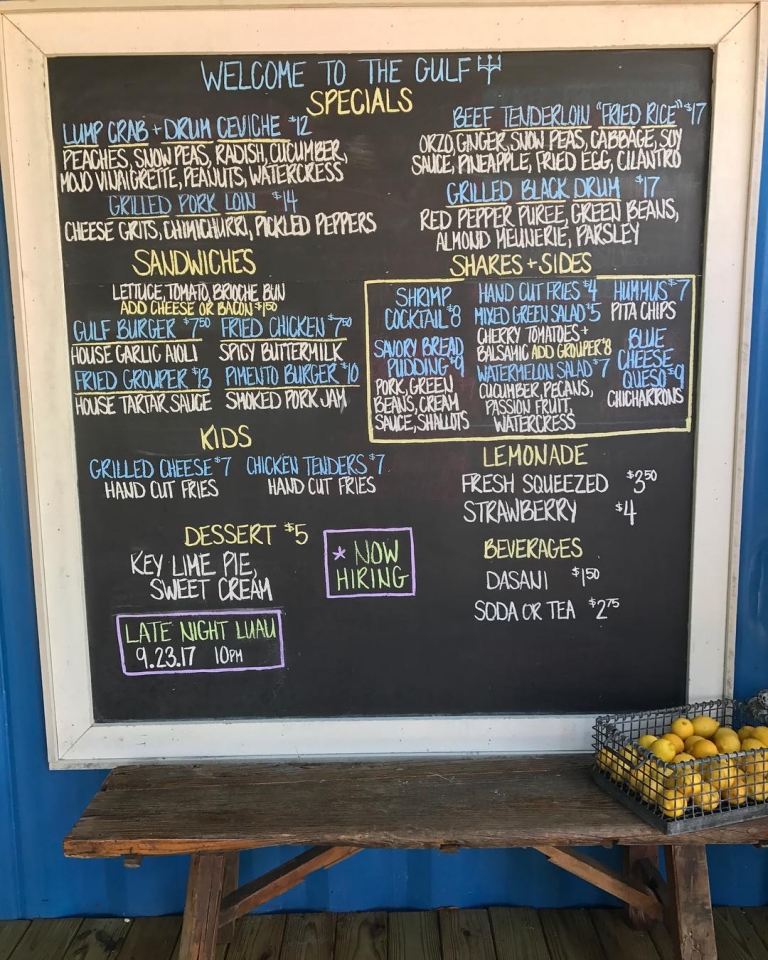 WELCOME TO THE GULF
SPECIALS
LUMP CRAB + DRUM CEVICHE $12
PEACHES, SNOW PEAS, RADISH, CUCUMBER,
MOJO VINAIGRETTE, PEANUTS, WATERCRESS
GRILLED PORK LOIN $14
CHEESE GRITS, CHIMICHURRI, PICKLED PEPPERS
BEEF TENDERLOIN "FRIED RICE" $17
ORZO, GINGER, SNOW PEAS, CABBAGE, SOY
SAUCE, PINEAPPLE, FRIED EGG, CILANTRO
GRILLED BLACK DRUM $17
RED PEPPER PUREE, GREEN BEANS,
ALMOND MEUNERIE, PARSLEY
SANDWICHES
LETTUCE, TOMATO, BRIOCHE BUN
ADD CHEESE OR BACON $1.50
GULF BURGER $7.50
HOUSE GARLIC AIOLI
FRIED CHICKEN $7.50
SPICY BUTTERMILK
FRIED GROUPER $13
HOUSE TARTAR SAUCE
PIMENTO BURGER $10
SMOKED PORK JAM
SHARES + SIDES
SHRIMP
COCKTAIL $8
SAVORY BREAD
PUDDING $9
PORK, GREEN
BEANS, CREAM
SAUCE, SHALLOTS
HAND CUT FRIES $4
MIXED GREEN SALAD $5
CHERRY TOMATOES +
BALSAMIC ADD GROUPER $8
WATERMELON SALAD $7
CUCUMBER, PECANS,
PASSION FRUIT,
WATERCRESS
HUMMUS $7
PITA CHIPS
BLUE
CHEESE
QUESO $9
CHICHARRONS
KIDS
GRILLED CHEESE $7
HAND CUT FRIES
CHICKEN TENDERS $7
HAND CUT FRIES
LEMONADE
FRESH SQUEEZED $3.50
STRAWBERRY $4
DESSERT $5
KEY LIME PIE,
SWEET CREAM
* NOW
HIRING
BEVERAGES
DASANI $1.50
SODA OR TEA $2.75
LATE NIGHT LUAU
9.23.17 10PM